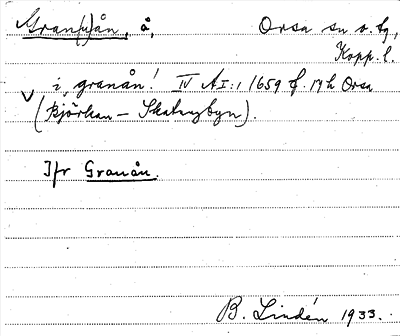 Gran(u)ån, å, Orsa sn o. tg,
Kopp. l.
i, granån! IV AI:1 1659 f. 19½ Orsa
(Björkan – Skattungbyn).
Jfr Granån.
B. Lindén 1933.